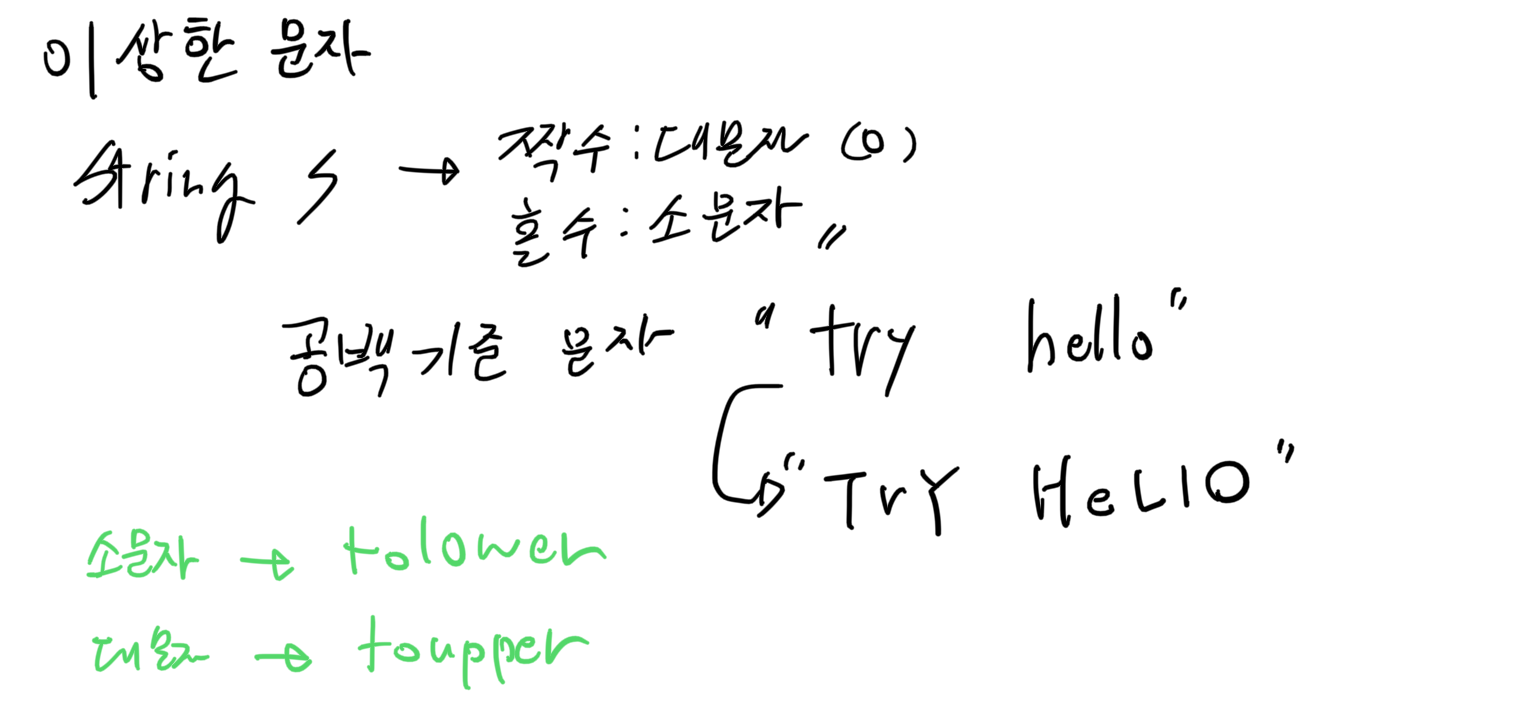 이상한 문자
string s → 짝수 : 대문자 (0)
홀수 : 소문자 〃
공백기준 문자 "try hello"
"TrY HeLlO"
소문자 → tolower
대문자 → toupper